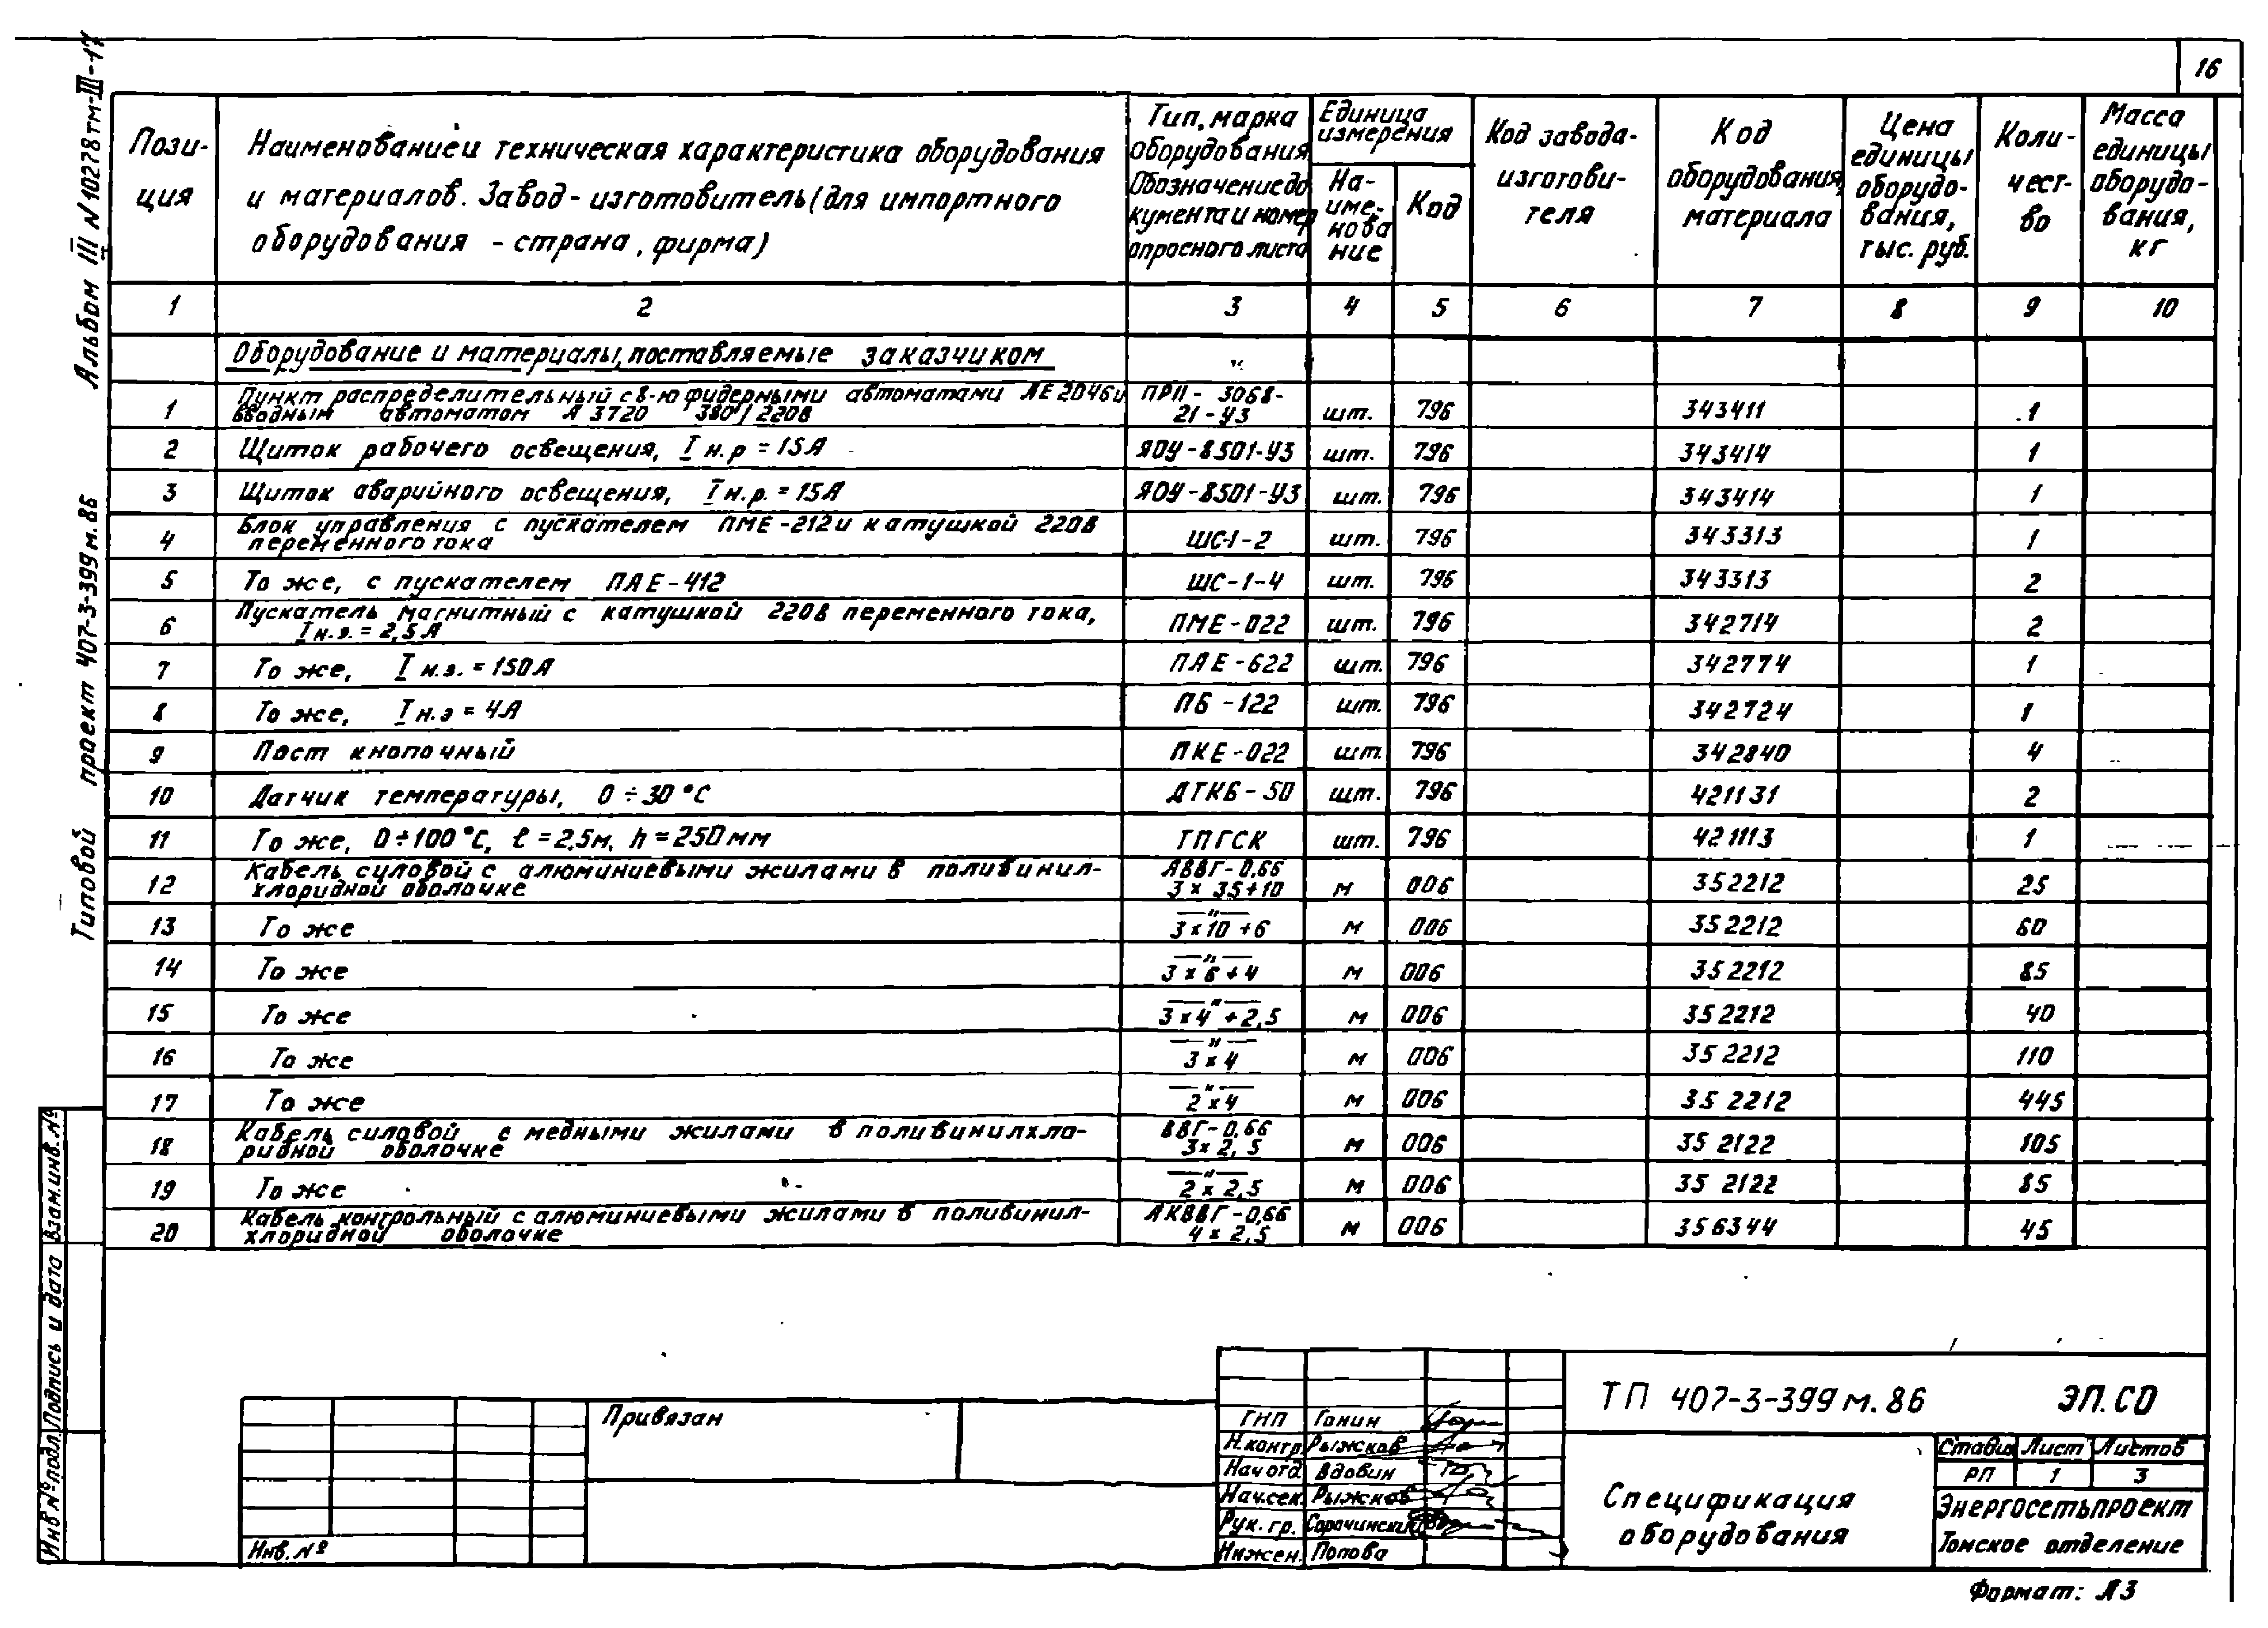 16
Альбом III N 10278тм-III-17
Типовой проект 407-3-399м.86
Пози-
ция
Наименование и техническая характеристика оборудования
и материалов. Завод-изготовитель (для импортного
оборудования - страна, фирма)
Тип, марка
оборудования
Обозначение до
кумента и номер
опросного листа
Единица
измерения
На-
име-
нова
ние
Код
Код завода-
изготови-
теля
Код
оборудования,
материала
Цена
единицы
оборудо-
вания,
тыс. руб.
Коли-
чест-
во
Масса
единицы
оборудо-
вания,
кг
1 2 3 4 5 6 7 8 9 10
Оборудование и материалы, поставляемые заказчиком
1 Пункт распределительный с 8-ю фидерными автоматами АЕ2046 и ПРП - 3068- шт. 796 343411 1
вводным автоматом А 3720 380/220В 21-У3
2 Щиток рабочего освещения, Iн.р = 15А ЯОУ-8501-У3 шт. 796 343414 1
3 Щиток аварийного освещения, Iн.р. = 15А ЯОУ-8501-У3 шт. 796 343414 1
4 Блок управления с пускателем ПМЕ-212 и катушкой 220В ШС-1-2 шт. 796 343313 1
переменного тока
5 То же, с пускателем ПАЕ-412 ШС-1-4 шт. 796 343313 2
6 Пускатель магнитный с катушкой 220В переменного тока, ПМЕ-022 шт. 796 342714 2
Iн.э. = 2,5А
7 То же, Iн.э. = 150А ПАЕ-622 шт. 796 342774 1
8 То же, Iн.э = 4А ПБ-122 шт. 796 342724 1
9 Пост кнопочный ПКЕ-022 шт. 796 342840 4
10 Датчик температуры, 0÷30°С ДТКБ-50 шт. 796 421131 2
11 То же, 0÷100°С, ℓ = 2,5м, h = 250мм ТПГСК шт. 796 421113 1
12 Кабель силовой с алюминиевыми жилами в поливинил- АВВГ-0,66 м 006 352212 25
хлоридной оболочке 3×35+10
13 То же —"— 3×10+6 м 006 352212 60
14 То же —"— 3×6+4 м 006 352212 85
15 То же —"— 3×4+2,5 м 006 352212 40
16 То же —"— 3×4 м 006 352212 110
17 То же —"— 2×4 м 006 352212 445
18 Кабель силовой с медными жилами в поливинилхло- ВВГ-0,66 м 006 352122 105
ридной оболочке 3×2,5
19 То же —"— 2×2,5 м 006 352122 85
20 Кабель контрольный с алюминиевыми жилами в поливинил- АКВВГ-0,66 м 006 356344 45
хлоридной оболочке 4×2,5
Взам.инв.№
Подпись и дата
Инв № подл.
Привязан
Инв.№
ГИП Гонин
Н.контр. Рыжков
Нач отд Вдовин
Нач.сек. Рыжков
Рук. гр. Сорочинский
Инжен. Попова
ТП 407-3-399м.86 ЭП.СО
Спецификация
оборудования
Стадия Лист Листов
РП 1 3
Энергосетьпроект
Томское отделение
Формат: А3